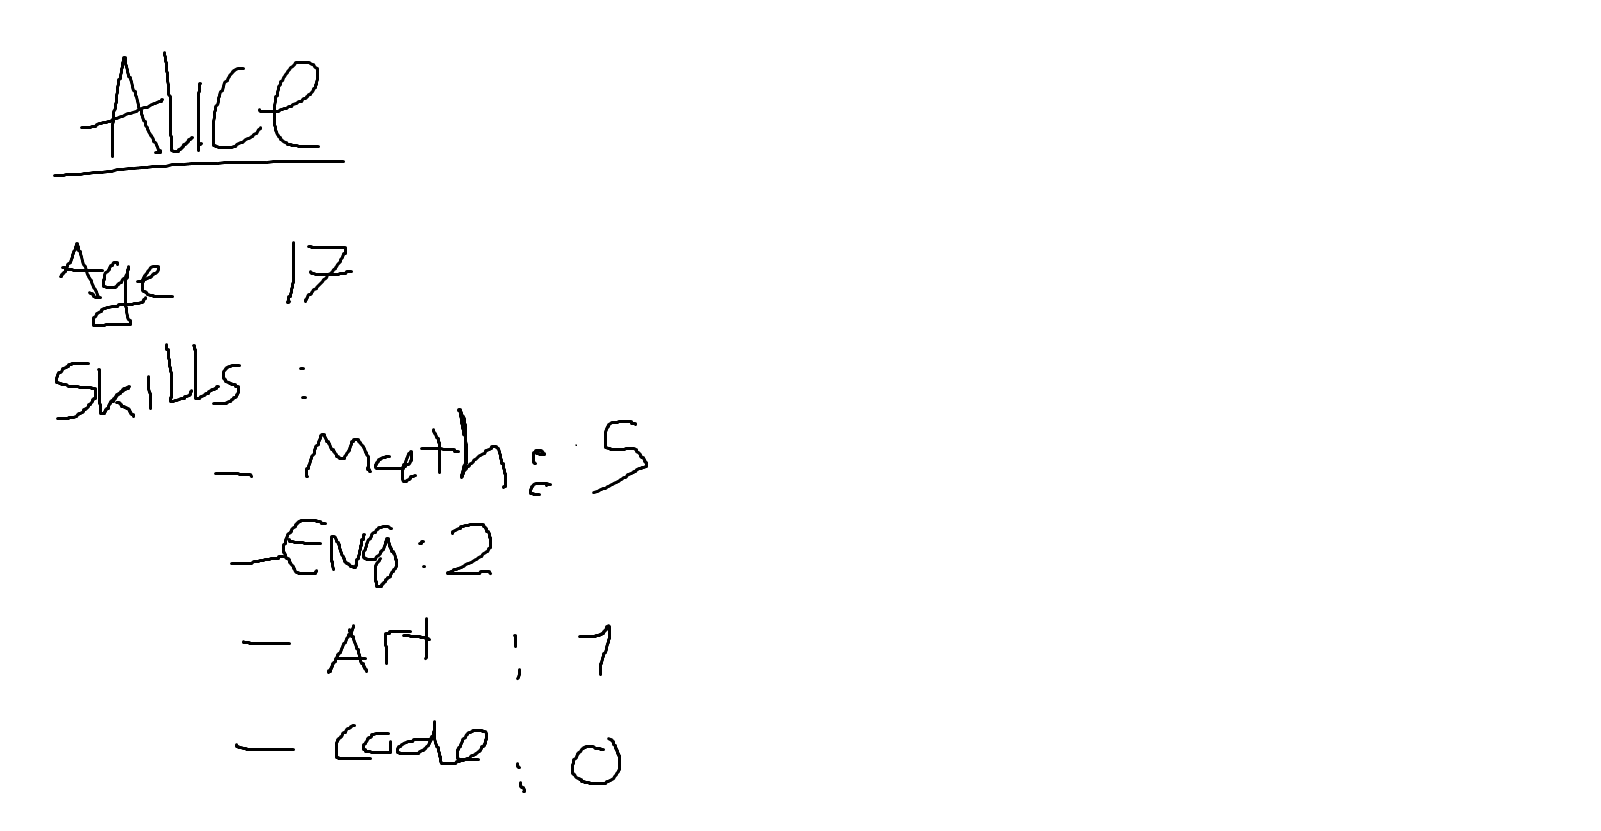 Alice
Age 17
Skills :
- Math: 5
- Eng: 2
- Art : 1
- code : 0